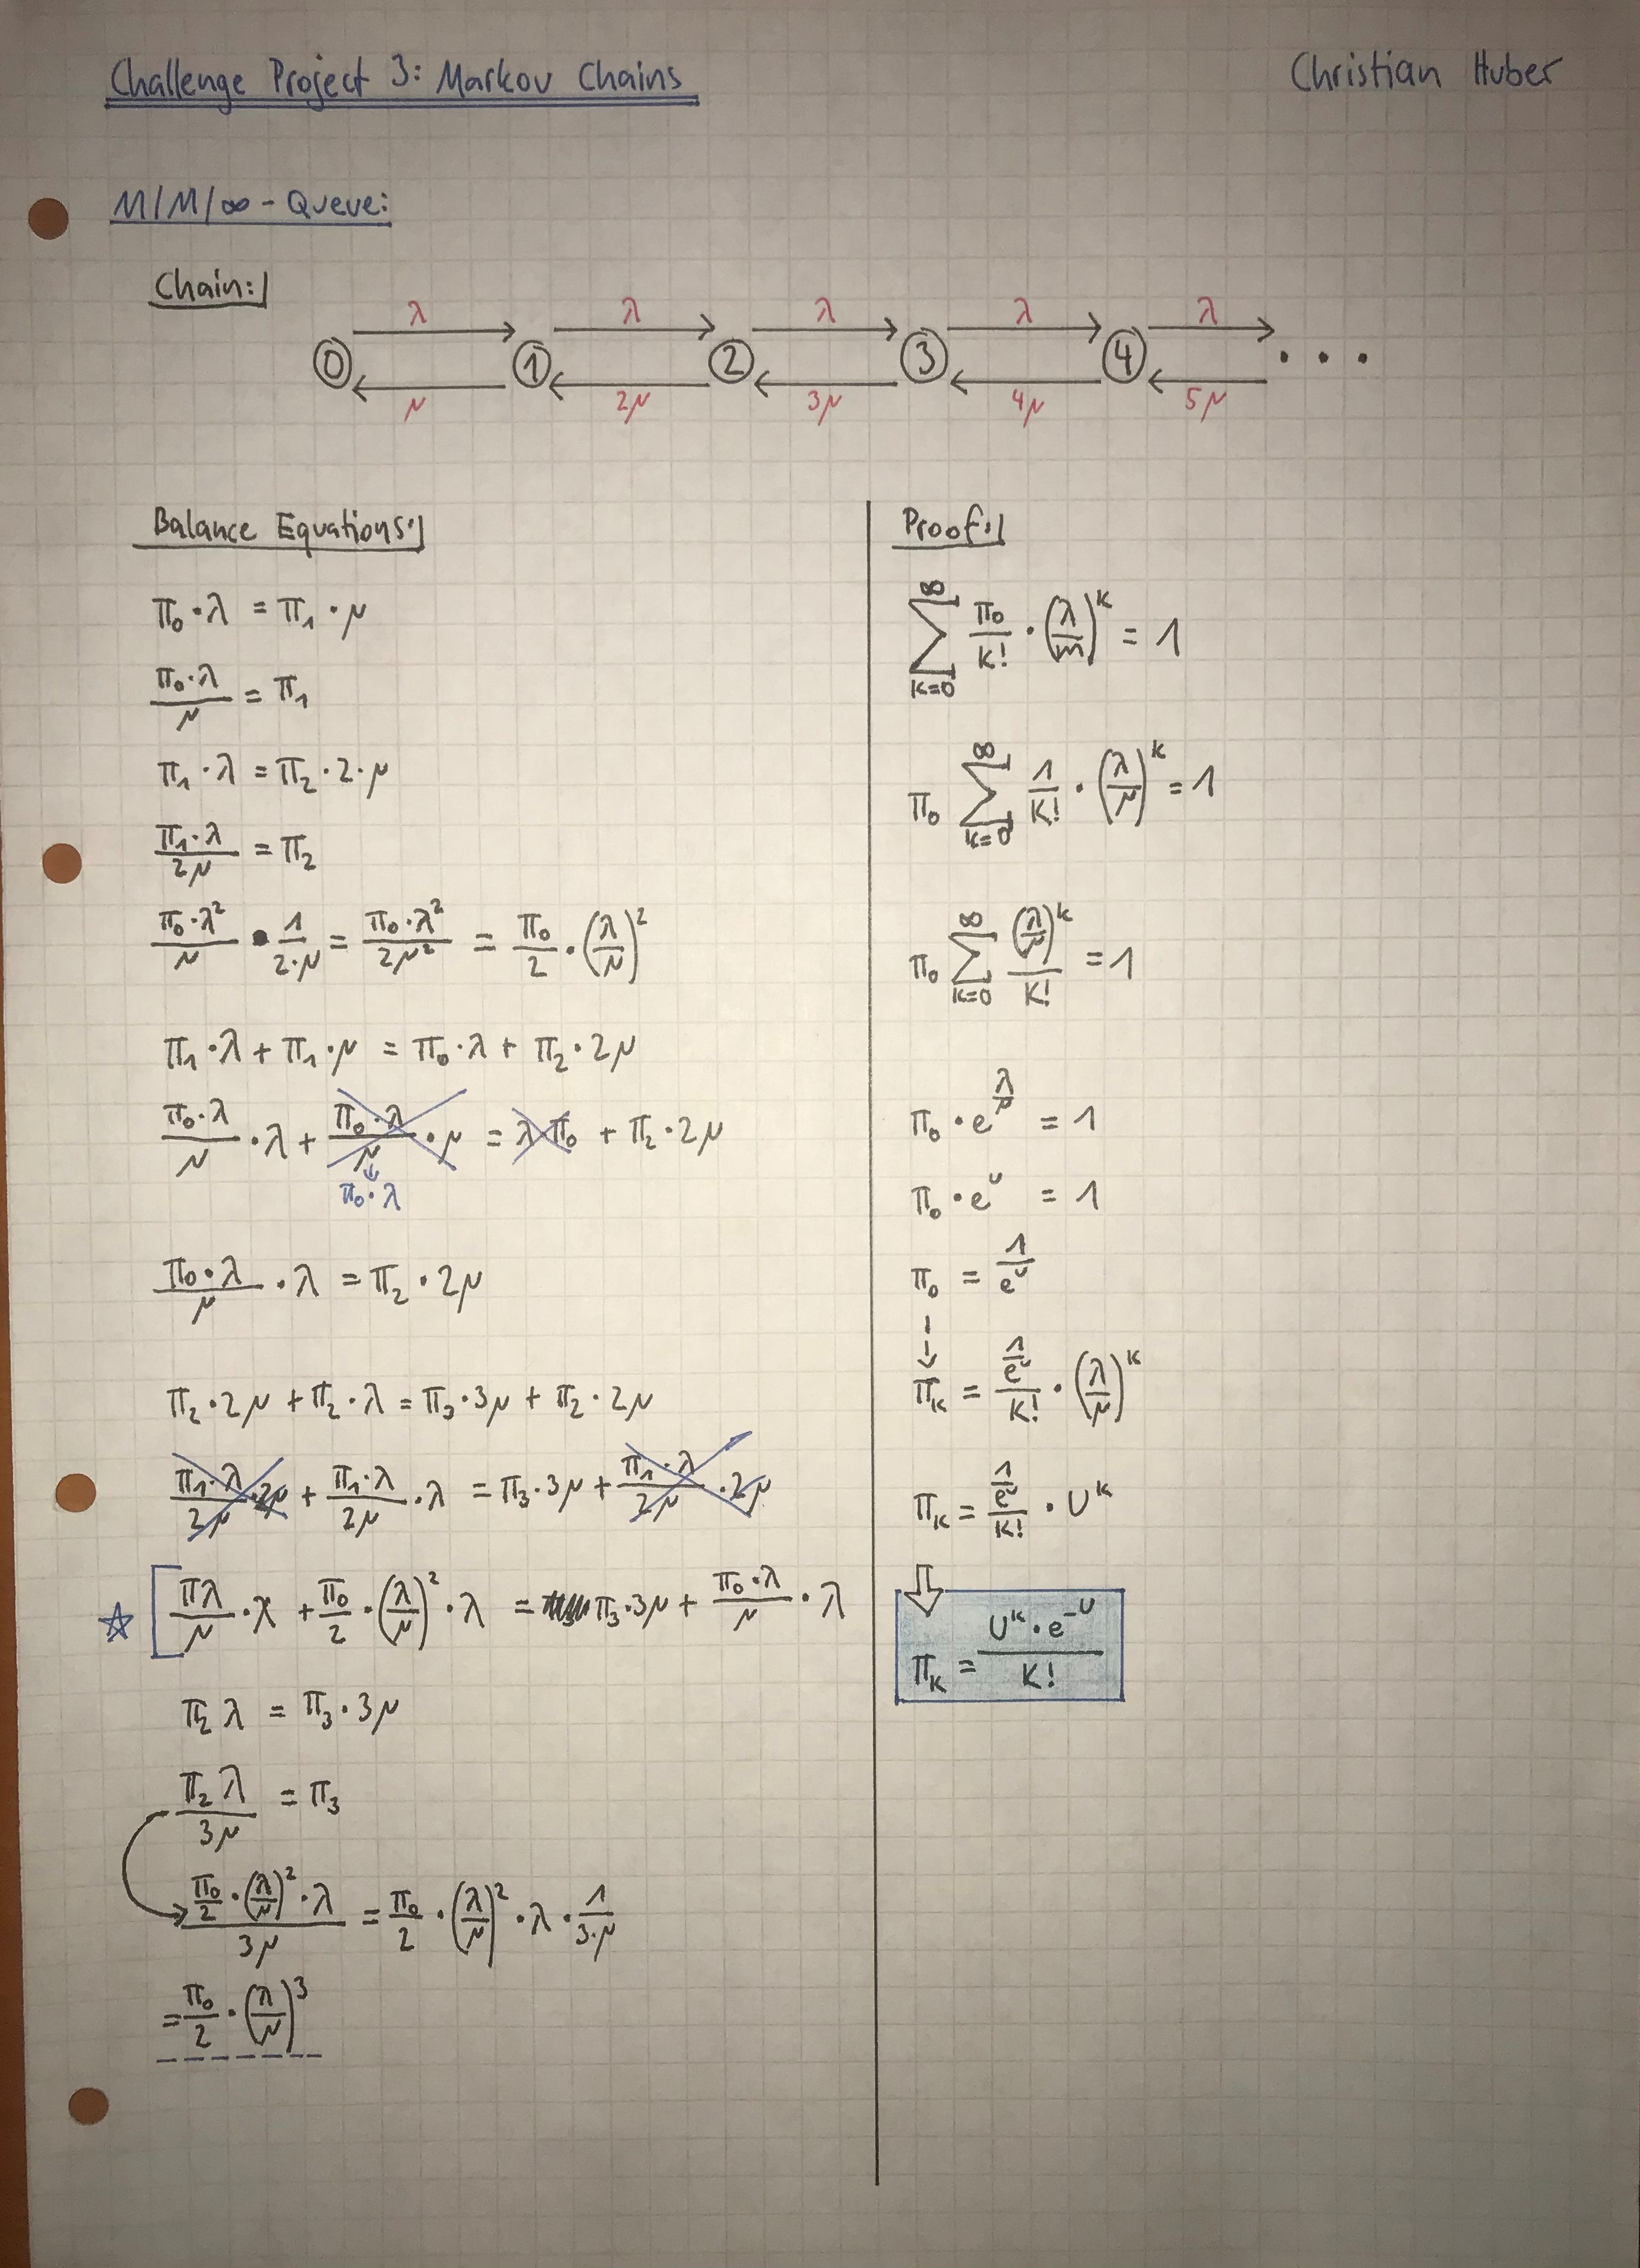 Challenge Project 3: Markov Chains
Christian Huber
M/M/∞ - Queue:
Chain:
λ λ λ λ λ
0 1 2 3 4 ...
μ 2μ 3μ 4μ 5μ
Balance Equations:
π₀·λ = π₁·μ
(π₀·λ)/μ = π₁
π₁·λ = π₂·2·μ
(π₁·λ)/(2μ) = π₂
(π₀·λ²)/μ · 1/(2·μ) = (π₀·λ²)/(2μ²) = π₀/2 · (λ/μ)²
π₁·λ + π₁·μ = π₀·λ + π₂·2μ
(π₀·λ)/μ · λ + (π₀·λ)/μ · μ = λ·π₀ + π₂·2μ
↓
π₀·λ
(π₀·λ)/μ · λ = π₂·2μ
π₂·2μ + π₂·λ = π₃·3μ + π₂·2μ
(π₁·λ)/(2μ) · 2μ + (π₁·λ)/(2μ) · λ = π₃·3μ + (π₁·λ)/(2μ) · 2μ
☆ [ (πλ)/μ · λ + π₀/2 · (λ/μ)² · λ = π₃·3μ + (π₀·λ)/μ · λ
π₂ λ = π₃·3μ
(π₂ λ)/(3μ) = π₃
(π₀/2 · (λ/μ)² · λ)/(3μ) = π₀/2 · (λ/μ)² · λ · 1/(3·μ)
= π₀/2 · (λ/μ)³
Proof:
∑_{k=0}^{∞} π₀/k! · (λ/m)^k = 1
π₀ ∑_{k=0}^{∞} 1/k! · (λ/μ)^k = 1
π₀ ∑_{k=0}^{∞} (λ/μ)^k / k! = 1
π₀ · e^{λ/μ} = 1
π₀ · e^U = 1
π₀ = 1/e^U
↓
π_k = (1/e^U)/k! · (λ/μ)^k
π_k = (1/e^U)/k! · U^k
⇩
π_k = (U^k · e^{-U})/k!